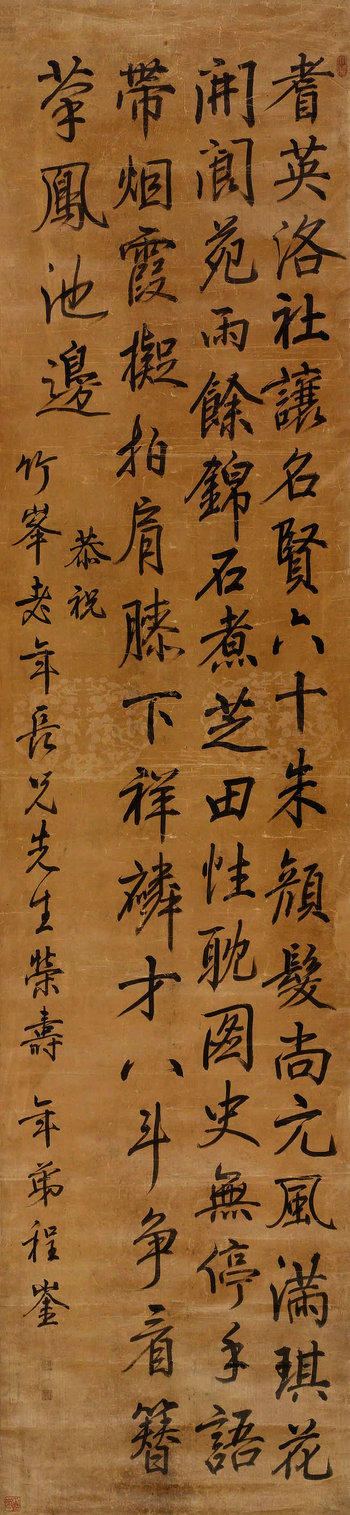 耆英洛社讓名賢六十朱顏髮尚元風滿琪花
開閬苑雨餘錦石煮芝田性耽図史無停手語
帶烟霞擬拍肩膝下祥麟才八斗争看簪
筆鳳池邊
恭祝
竹峯老年長兄先生榮壽 年弟程崟